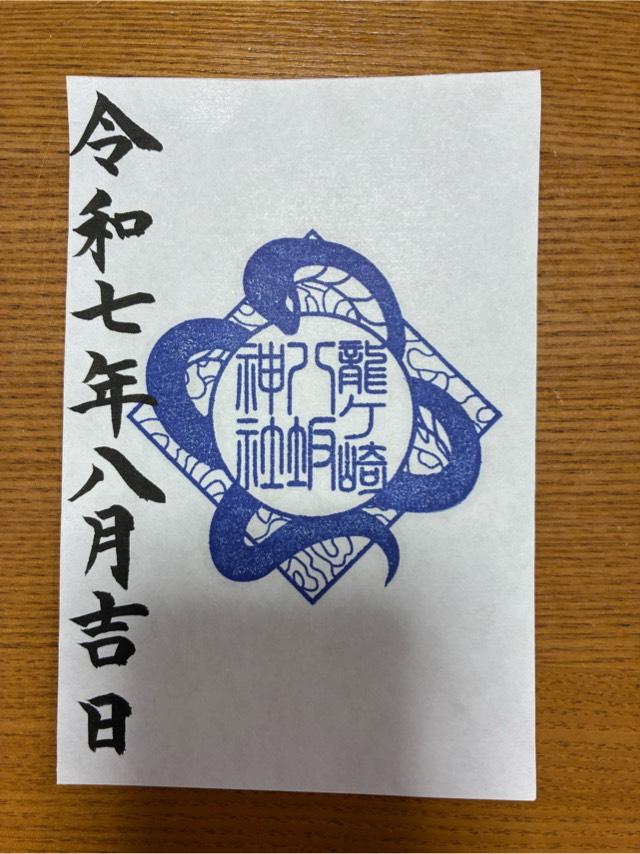 龍ケ崎
八坂
神社
令和七年八月吉日